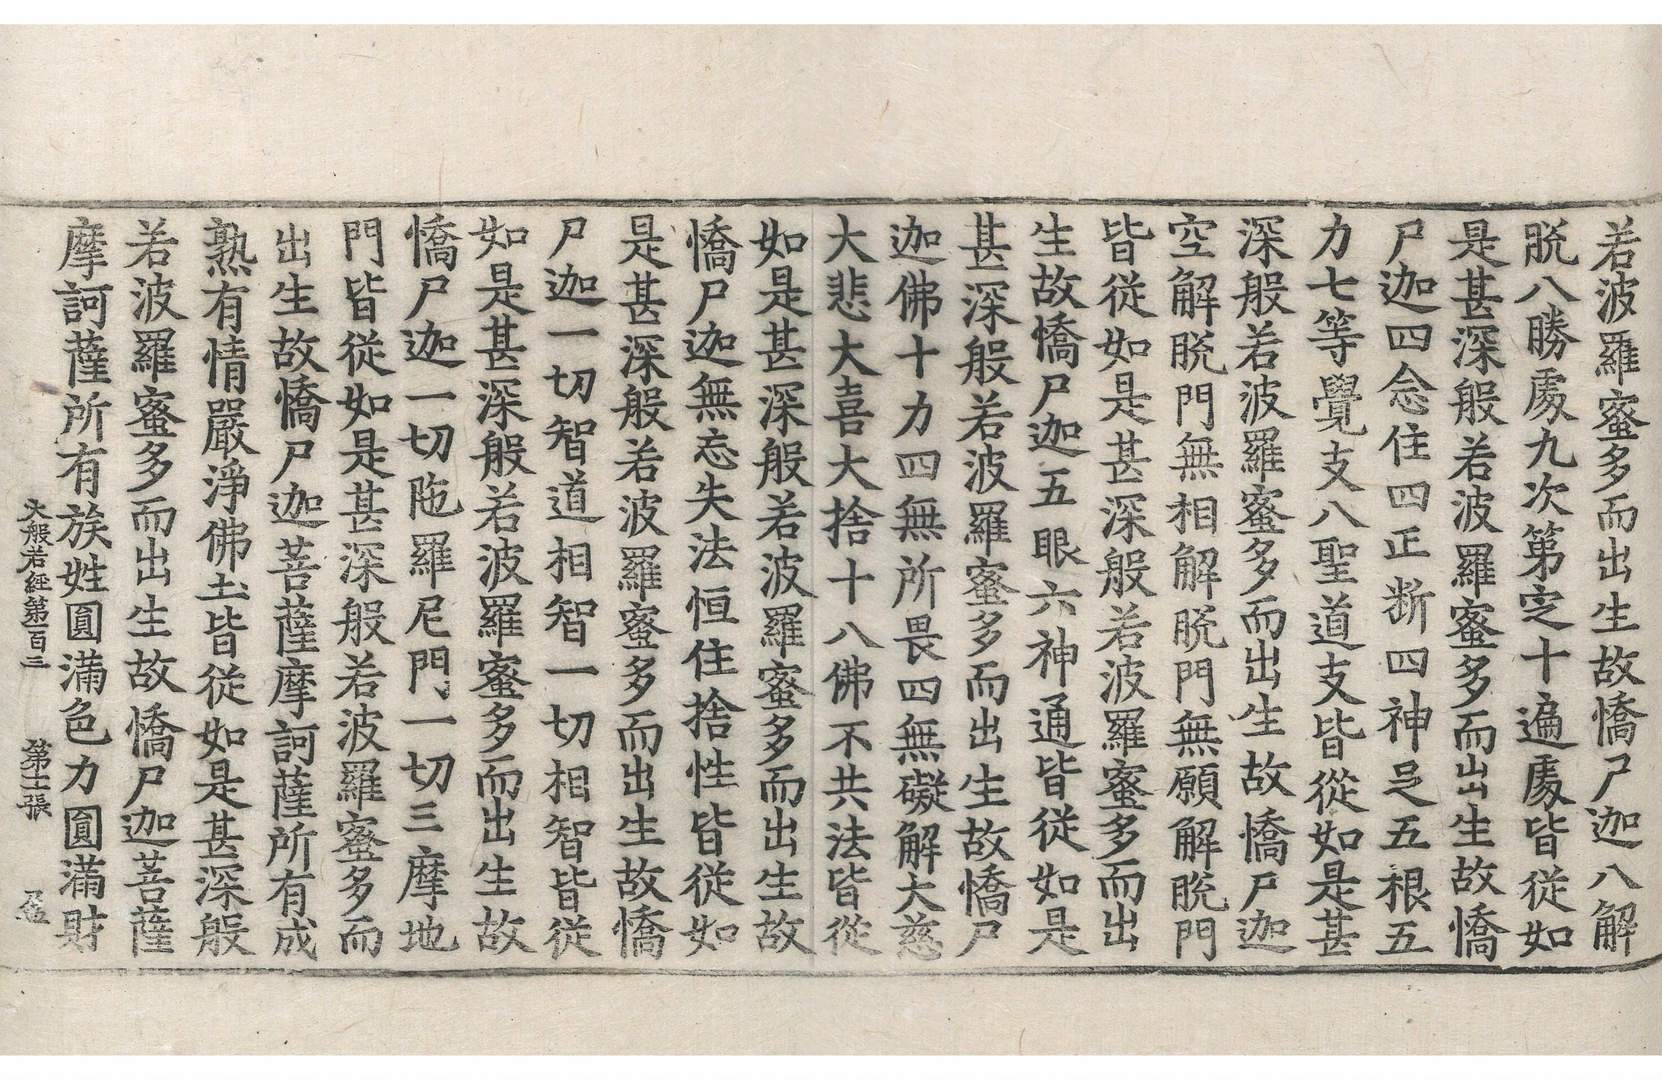 若波羅蜜多而出生故憍尸迦八解
脫八勝處九次第定十遍處皆從如
是甚深般若波羅蜜多而出生故憍
尸迦四念住四正斷四神足五根五
力七等覺支八聖道支皆從如是甚
深般若波羅蜜多而出生故憍尸迦
空解脫門無相解脫門無願解脫門
皆從如是甚深般若波羅蜜多而出
生故憍尸迦五眼六神通皆從如是
甚深般若波羅蜜多而出生故憍尸
迦佛十力四無所畏四無礙解大慈
大悲大喜大捨十八佛不共法皆從
如是甚深般若波羅蜜多而出生故
憍尸迦無忘失法恒住捨性皆從如
是甚深般若波羅蜜多而出生故憍
尸迦一切智道相智一切相智皆從
如是甚深般若波羅蜜多而出生故
憍尸迦一切陁羅尼門一切三摩地
門皆從如是甚深般若波羅蜜多而
出生故憍尸迦菩薩摩訶薩所有成
熟有情嚴淨佛土皆從如是甚深般
若波羅蜜多而出生故憍尸迦菩薩
摩訶薩所有族姓圓滿色力圓滿財
大般若經第百三 第十二張